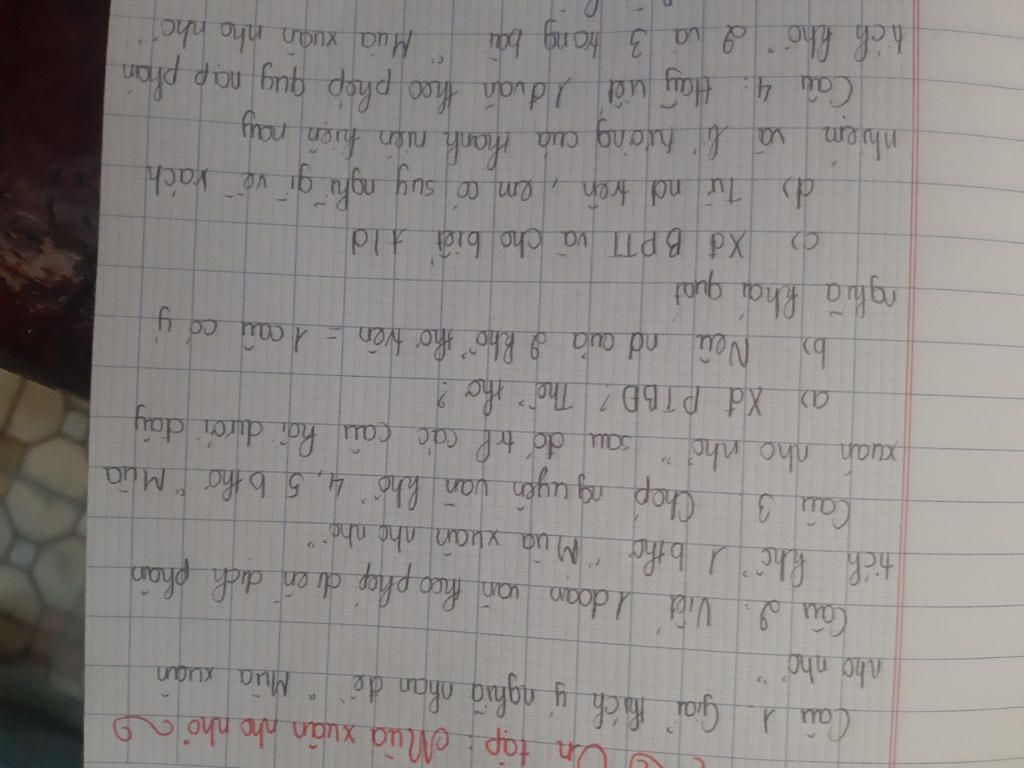 Ôn tập: Mùa xuân nho nhỏ
Câu 1. Giải thích ý nghĩa nhan đề "Mùa xuân
nho nhỏ"
Câu 2: Viết 1 đoạn văn theo phép diễn dịch phân
tích khổ 1 bthơ "Mùa xuân nho nhỏ"
Câu 3: Chép nguyên văn khổ 4, 5 bthơ "Mùa
xuân nho nhỏ" sau đó trl các câu hỏi dưới đây
a) Xđ PTBĐ? Thể thơ?
b) Nêu nd của 2 khổ thơ trên = 1 câu có ý
nghĩa khái quát
c) Xđ BPTT và cho biết t/d
d) Từ nd trên, em có suy nghĩ gì về trách
nhiệm và lí tưởng của thanh niên hiện nay
Câu 4: Hãy viết 1 đ văn theo phép quy nạp phân
tích khổ 2 và 3 trong bài "Mùa xuân nho nhỏ"